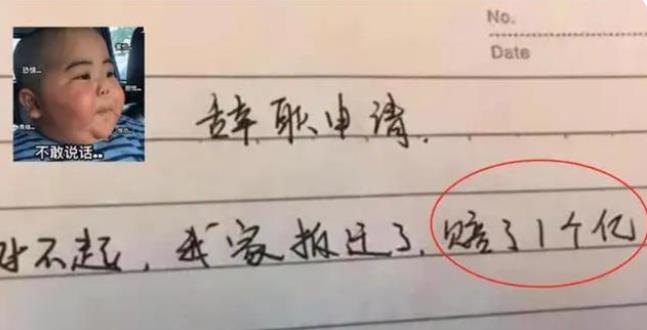 No.
Date
不敢说话..
辞职申请.
对不起，我家拆迁了，赔了1个亿